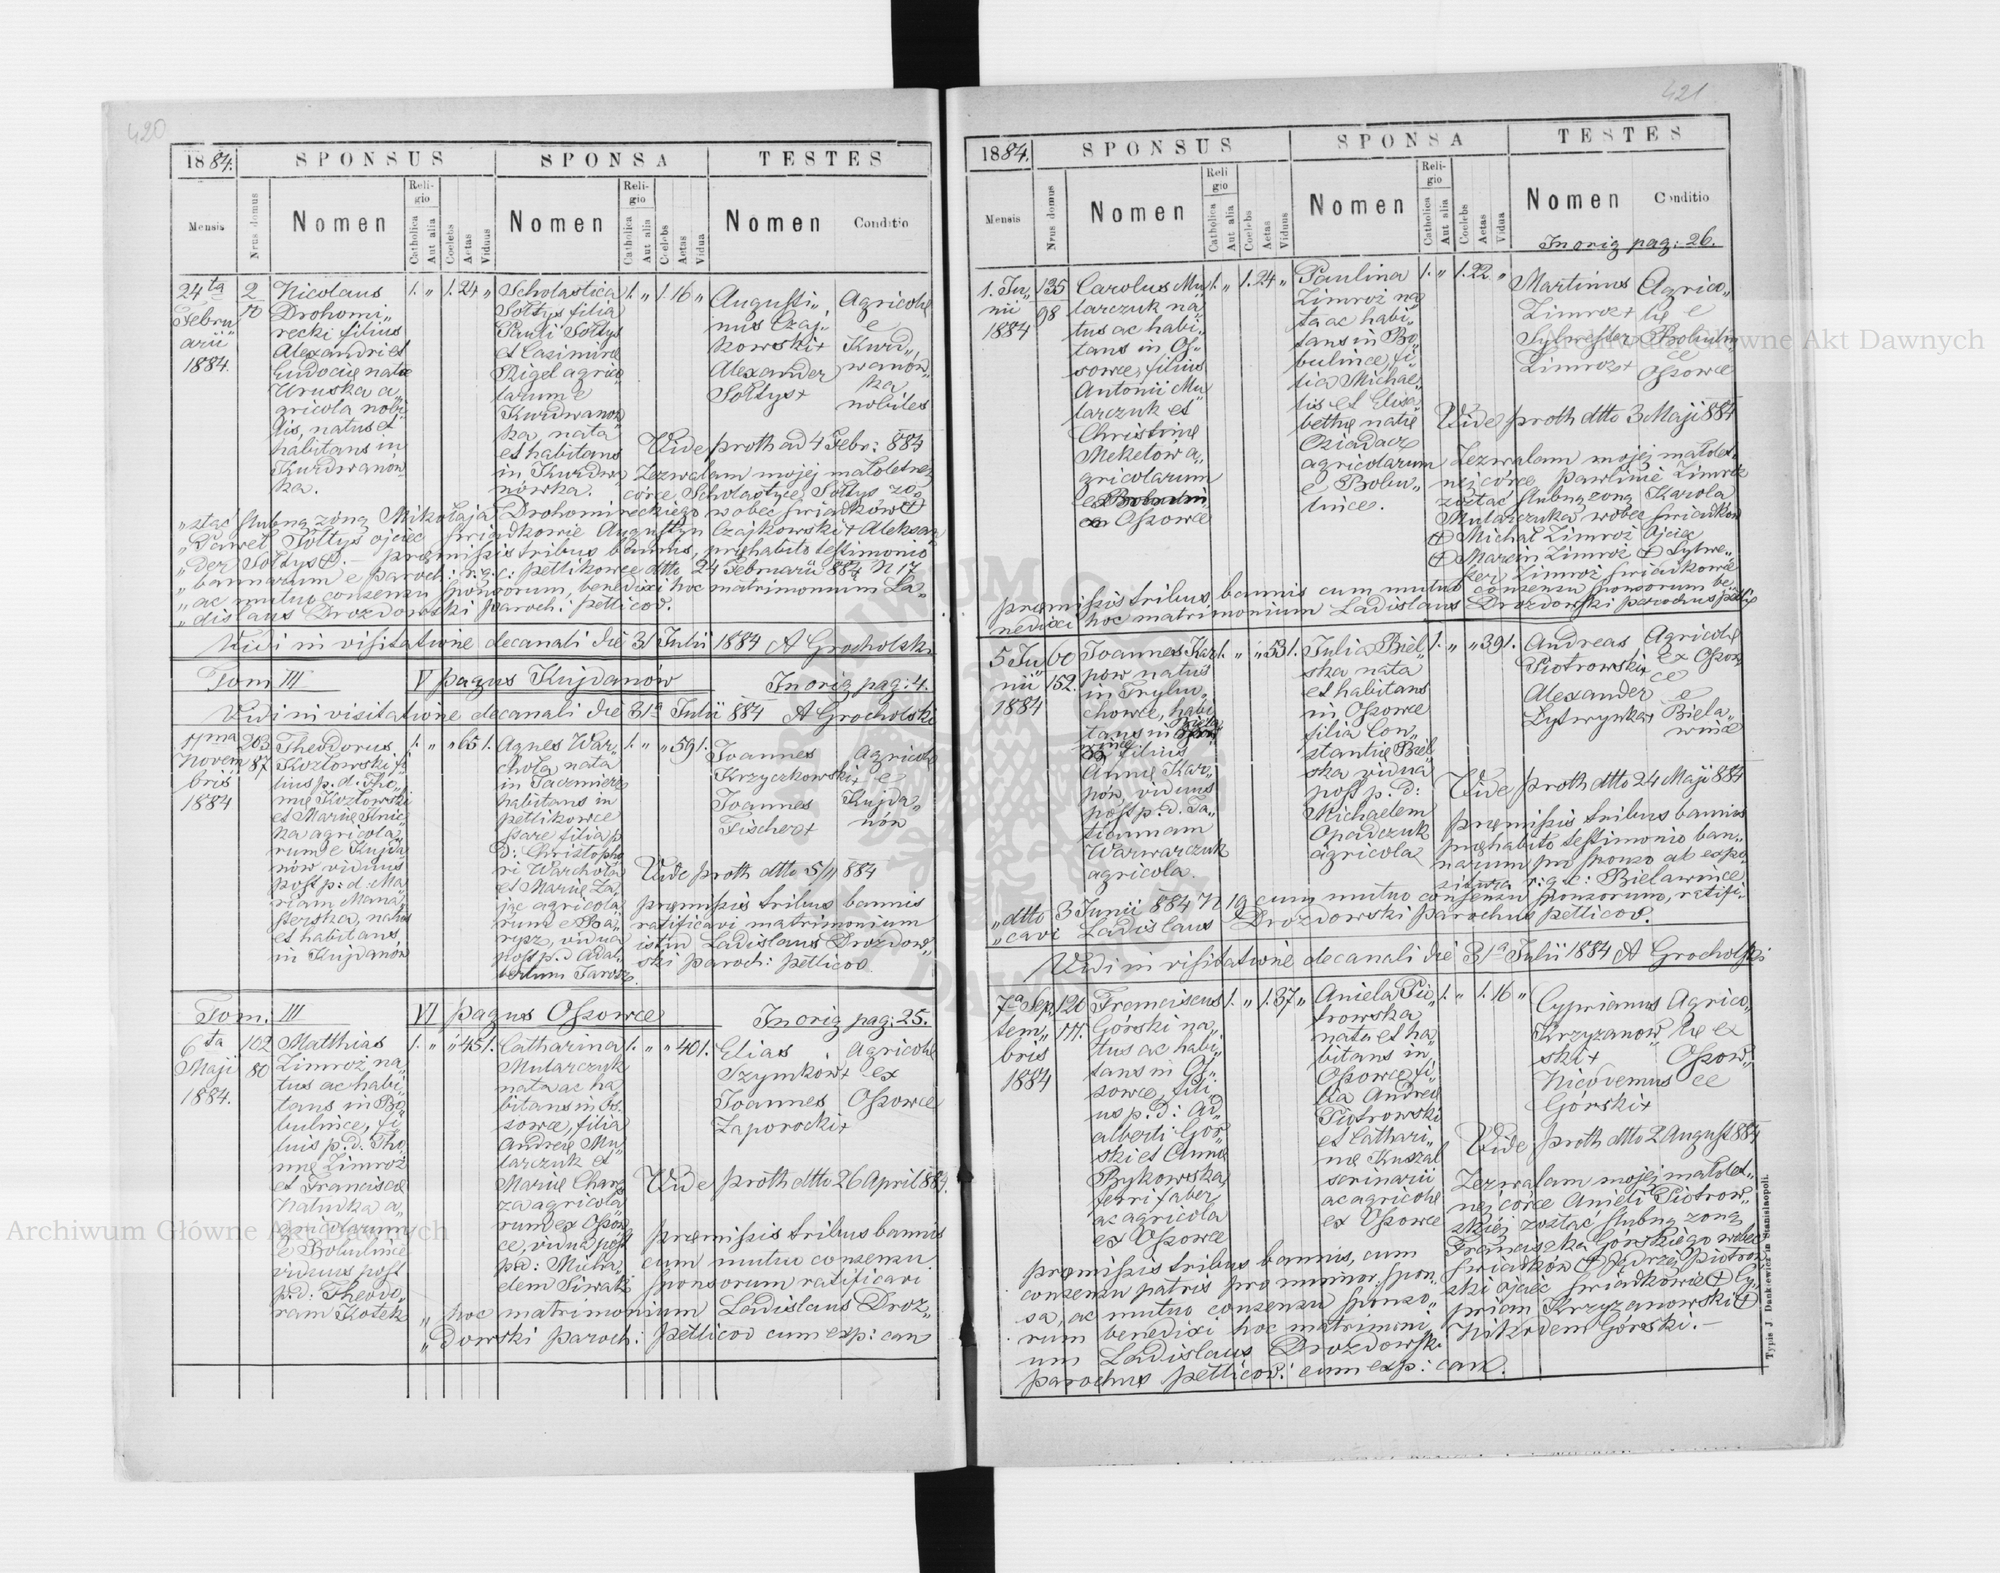 420
1884.
SPONSUS
SPONSA
TESTES
Mensis
Nrus domus
Nomen
Religio
Catholica
Aut alia
Coelebs
Aetas
Viduus
Nomen
Religio
Catholica
Aut alia
Coelebs
Aetas
Vidua
Nomen
Conditio
24ta
Febru
arii
1884.
2
70
Nicolaus
Drohomi„
recki filius
Alexandri et
Eudociæ natæ
Hruska a„
gricola nobi
lis, natus et
habitans in
Kurdwanów
ka.
1. „ 1. 24 „
Scholastica
Sołtys filia
Pauli Sołtys
et Casimiræ
Rigel agrico
larum e
Kurdwanow
ka, nata
et habitans
in Kurdwa
nówka.
1. „ 1. 16 „
Augusti„
nus Czaj„
kowski+
Alexander
Sołtys+
Agricolæ
e
Kurd„
wanow„
ka
nobiles
Vide proth ad 4 Febr: 884
Zezwalam mojej małoletniej
córce Scholastyce Sołtys zo„
„stać ślubną żoną Mikołaja Drohomireckiego wobec świadków +
„Paweł Sołtys ojciec świadkowie Augustyn Czajkowski + Aleksan
„der Sołtys +. — præmissis tribus bannis, præhabito testimonio
„bannorum e paroch: r. g. c: Petlikowce dtto 24 Februarii 884 N 17
„ac mutuo consensu sponsorum, benedixi hoc matrimonium La„
„dislaus Drozdowski paroch: petlicov.
Vidi in visitatione decanali die 31 Julii 1884 A Grocholski
Tom III
V pagus Kujdanów
In orig pag: 4.
Vidi in visitatione decanali die 31a Julii 884 A Grocholski
11ma
Novem
bris
1884
203
87
Theodorus
Kozłowski fi
lius p. d. Tho„
mæ Kozłowski
et Mariæ Ilnic„
ka agricola„
rum e Kujda
nów viduus
post p: d: Ma
riam Mana„
sterska, natus
et habitans
in Kujdanów
1. „ „ 65 1.
Agnes War„
choła nata
in Jazmierz
habitans in
petlikowce
stare filia p
D: Christopho
ri Warchoła
et Mariæ Za„
jąc agricola
rum e Ba„
rysz, vidua
post p. d Ada„
bertum Jarosz
1. „ „ 59 1.
Joannes
Krzyczkowski+
Joannes
Fischer+
Agricolæ
e
Kujda„
nów
Vide proth dtto 5/11 884
præmissis tribus bannis
ratificavi matrimonium
istud Ladislaus Drozdow„
ski paroch: petlicov
Tom. III
VI pagus Ossowce
In orig pag: 25.
6ta
Maji
1884.
102
80
Matthias
Zimroż na„
tus ac habi„
tans in Bo„
bulince, fi
lius p. d. Tho„
mæ Zimroż
et Franciscæ
Hałuńka a„
gricolarum
e Bobulince
viduus post
p. d. Theodo„
ram Kotek
1. „ „ 45 1.
Catharina
Mularczyk
nata ac ha
bitans in Os„
sowce, filia
Andreæ Mu„
larczuk et
Mariæ Char„
za agricola„
rum ex Ossow„
ce, vidua post
p d: Micha„
elem Siwak
1. „ „ 40 1.
Elias
Szymków+
Joannes
Zaporocki+
Agricolæ
ex
Ossowce
Vide proth dtto 26 April 884.
præmissis tribus bannis
cum mutuo consensu
sponsorum ratificavi
„ hoc matrimonium Ladislaus Droz„
„ dowski paroch: petlicov cum exp: can
421
1884.
SPONSUS
SPONSA
TESTES
Mensis
Nrus domus
Nomen
Religio
Catholica
Aut alia
Coelebs
Aetas
Viduus
Nomen
Religio
Catholica
Aut alia
Coelebs
Aetas
Vidua
Nomen
Conditio
In orig pag: 26.
1. Ju„
nii
1884
125
98
Carolus Mu
larczuk na„
tus ac habi„
tans in Os„
sowce, filius
Antonii Mu
larczuk et
Christinæ
Meketów a„
gricolarum
Ossowce
1. „ 1. 24 „
Paulina
Zimroż na
ta ac habi„
tans in Bo„
bulince, fi„
lia Michae„
lis et Elisa„
bethæ natæ
Oziadacz
agricolarum
e Bobu„
lince.
1. „ 1. 22. „
Martinus
Zimroż+
Sylvester
Zimroż+
Agrico„
læ e
Bobulin
Ossowce
Vide proth dtto 3 Maji 884
Zezwalam mojej małolet„
niej córce Pawlinie Zimroż
zostać ślubną żoną Karola
Mularczuka wobec świadków
+ Michał Zimroż Ojciec
+ Marcin Zimroż + Sylwe„
ster Zimroż świadkowie
præmissis tribus bannis cum mutuo consensu sponsorum be„
nedixi hoc matrimonium Ladislaus Drozdowski parochus petlic
5 Ju
nii
1884
60
152.
Joannes Kar
pow natus
in Trybu„
chowce, habi„
tans in
filius
Annæ Kar„
pów, viduus
post p. d. Ta„
tiannam
Warwarczuk
agricola.
1. „ „ 53 1.
Julia Biel„
ska nata
et habitans
in Ossowce
filia Con„
stantiæ Biel„
ska vidua
post p. d:
Michaelem
Opadczuk
agricola
1. „ „ 39 1.
Andreas
Piotrowski+
Alexander
Lytwynka+
Agricolæ
ex Ossow„
ce
e
Biela„
wince
Vide proth dtto 24 Maji 884
præmissis tribus bannis
præhabito testimonio ban„
norum pro sponso ab expo„
situra r: g: c: Bielawince
„dtto 3 Junii 884 N 19 cum mutuo consensu sponsorum, ratifi„
„cavi Ladislaus Drozdowski parochus petlicov.
Vidi in visitatione decanali die 31a Julii 1884 A Grocholski
7a Sep
tem„
bris
1884
120
111.
Franciscus
Górski na„
tus ac habi„
tans in Os„
sowce, fili„
us p. d: Ad„
alberti Gór„
ski et Annæ
Bykowska
ferri faber
ac agricola
ex Ossowce
1. „ 1. 37 „
Aniela Pio„
trowska
nata et ha„
bitans in
Ossowce fi„
lia Andreæ
Piotrowski
et Cathari„
næ Kuszał
scrinarii
ac agricolæ
ex Ossowce
1. „ 1. 16 „
Cyprianus
Krzyżanow„
ski+
Nicodemus
Górski+
Agrico„
læ ex
Ossow„
ce
Vide proth dtto 2 August 884
Zezwalam mojej małolet„
niej córce Anieli Piotrow„
skiej zostać ślubną żoną
Franciszka Górskiego wobec
świadków + Jędrzej Piotrow„
ski ojciec świadkowie + Cy„
prian Krzyżanowski +
Nikodem Górski. —
præmissis tribus bannis, cum
consensu patris pro minor. spon„
sa, ac mutuo consensu sponso„
rum benedixi hoc matrimoni„
um Ladislaus Drozdowski
parochus petlicov: cum exp: can.
Typis J. Dankiewicz in Stanislaopoli.
Archiwum Główne Akt Dawnych
Archiwum Główne Akt Dawnych